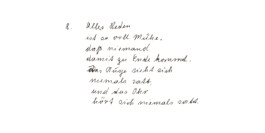 8. Alles Reden
ist so voll Mühe,
daß niemand
damit zu Ende kommt.
Das Auge sieht sich
niemals satt,
und das Ohr
hört sich niemals satt.